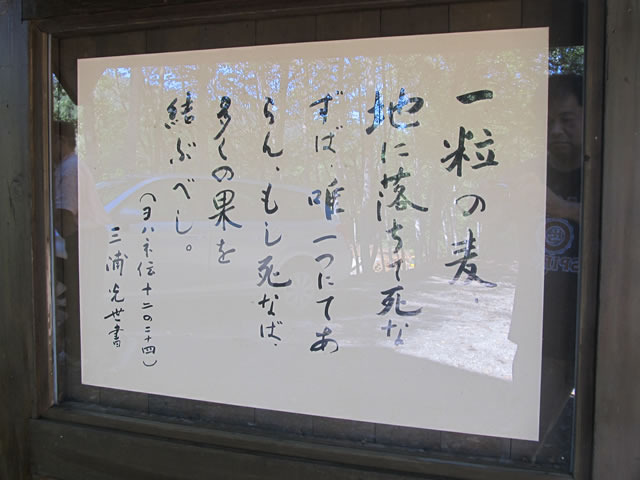 一粒の麦、
地に落ちて死な
ずば、唯一つにてあ
らん、もし死なば、
多くの果を
結ぶべし。
(ヨハネ伝十二の二十四)
三浦光世書